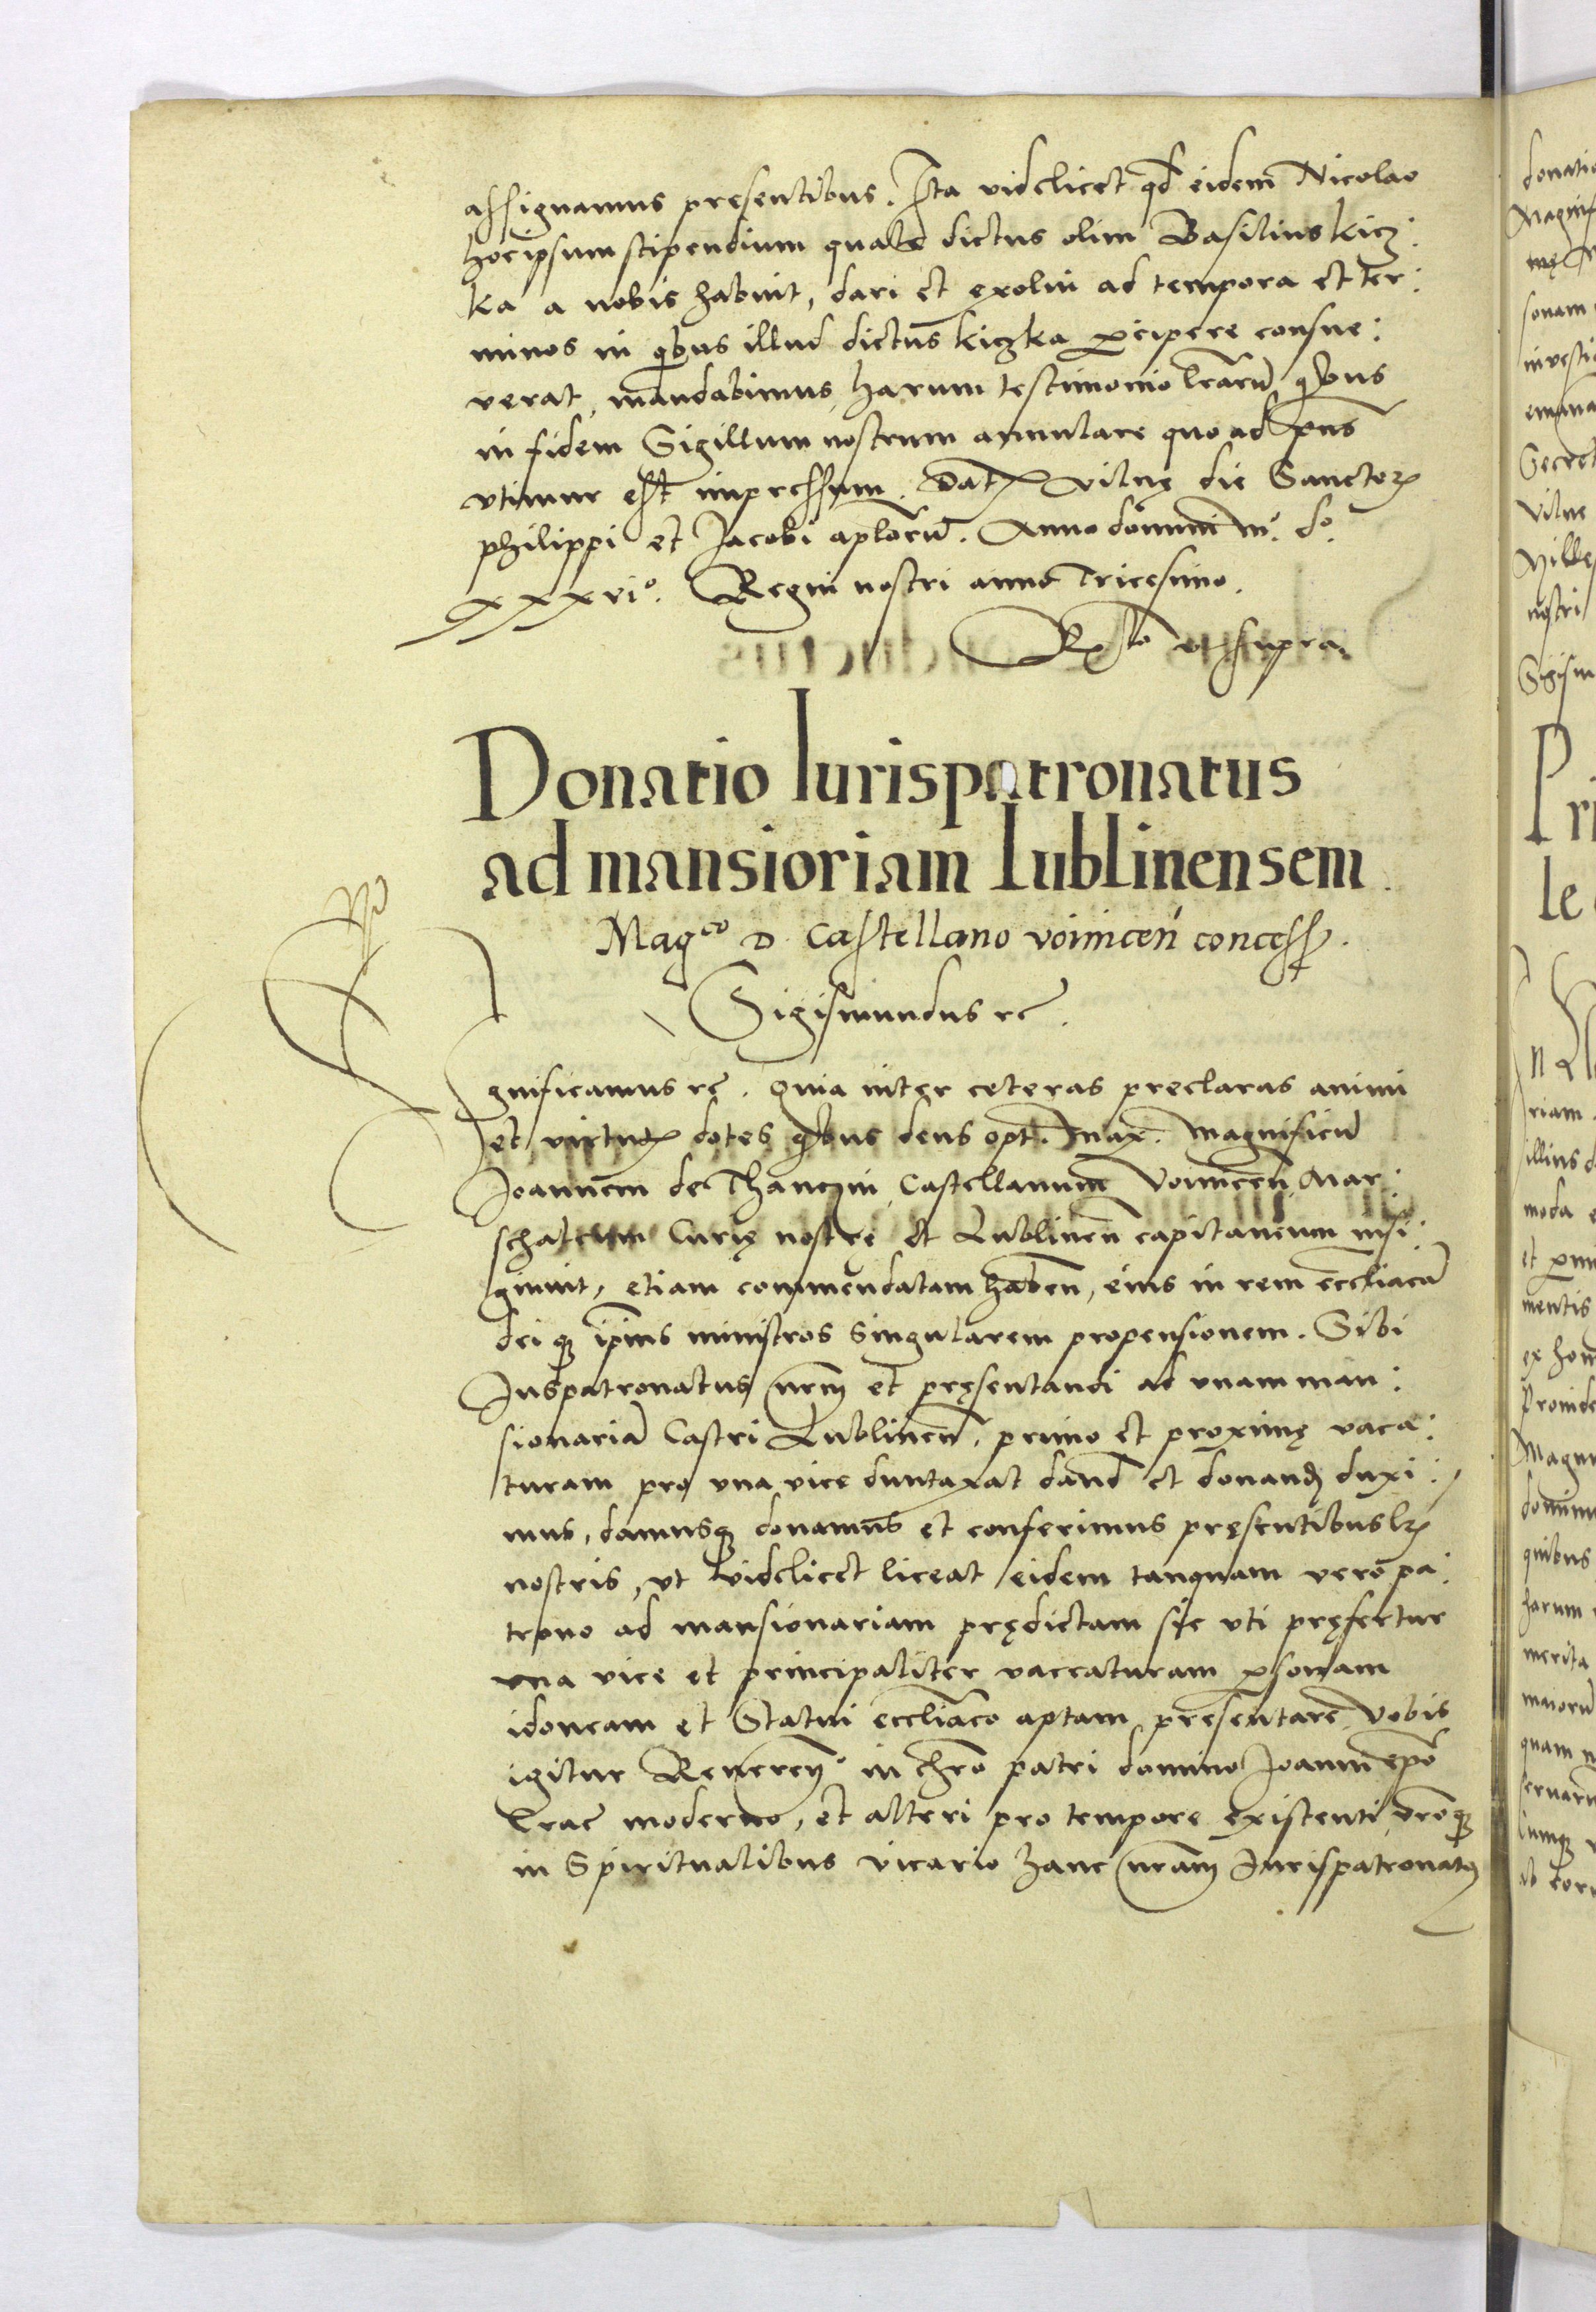 assignamus presentibus. Ita videlicet qd eidem Nicolao
hoc ipsum stipendium quale dictus olim Basilius kicz:
ka a nobis habuit, dari et exolui ad tempora et ter:
minos in qbus illud dictus kiczka ꝑcipere consue:
uerat, mandabimus, harum testimonio lrarū qbus
in fidem Sigillum nostrum annulare quo ad pns
vtimur est impressum. Datꝝ vilnę die Sanctoꝝ
philippi et Jacobi aplorū. Anno domini mº. dº.
xxxviº. Regni nostri anno Tricesimo.
Rlo vt supra
Donatio Iurispatronatus
ad mansioriam Lublinensem.
Magco D. Castellano voinicen concess.
Sigismundus rc.
Significamus rc. Quia inter ceteras preclaras animi
et virtutꝝ dotes qbus deus opt. max. Magnificū
Joannem de Thanczin Castellanum Voinicen Mar:
schalcum Curię nostre et Lublinen capitaneum insi:
gniuit, etiam commendatam haben, eius in rem eccliacā
dei qꝫ ipius ministros singularem propensionem. Sibi
Juspatronatus nrm et pręsentandi ad vnam man:
sionariā Castri Lublinen, primo et proximę vaca:
turam pro vna vice duntaxat dand et donand duxi:
mus, damusqꝫ donamus et conferimus pręsentibus lrꝭ
nostris, vt videlicet liceat eidem tanquam vero pa:
trono ad mansionariam prędictam sic vti pręfertur
vna vice et principaliter vaccaturam ꝑsonam
idoneam et Statui eccliaco aptam presentare Vobis
igitur Reueren. in chro patri domino Joanni epo
Crac moderno, et alteri pro tempore existenti, vroqꝫ
in Spiritualibus vicario hanc nram Jurispatronatꝰ